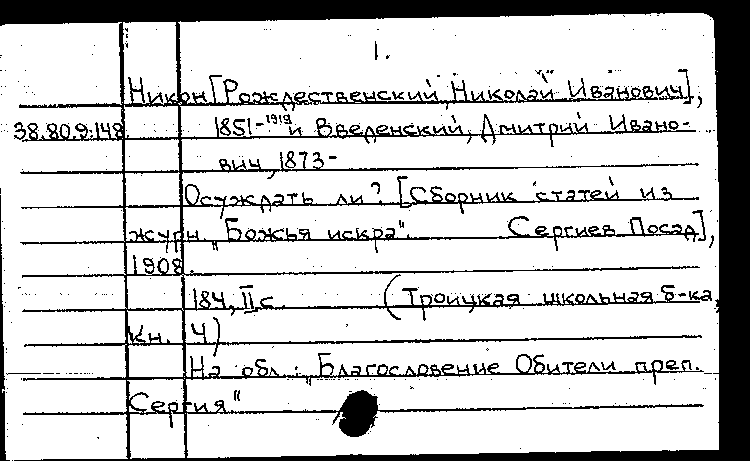 1.
Никон [Рождественский, Николай Иванович],
38.80.9.148 1851-1919 и Введенский, Дмитрий Ивано-
вич, 1873-
Осуждать ли? [Сборник статей из
журн. „Божья искра“. Сергиев Посад],
1908.
184, II с. (Троицкая школьная б-ка,
Кн. 4)
На обл.: „Благословение Обители преп.
Сергия“